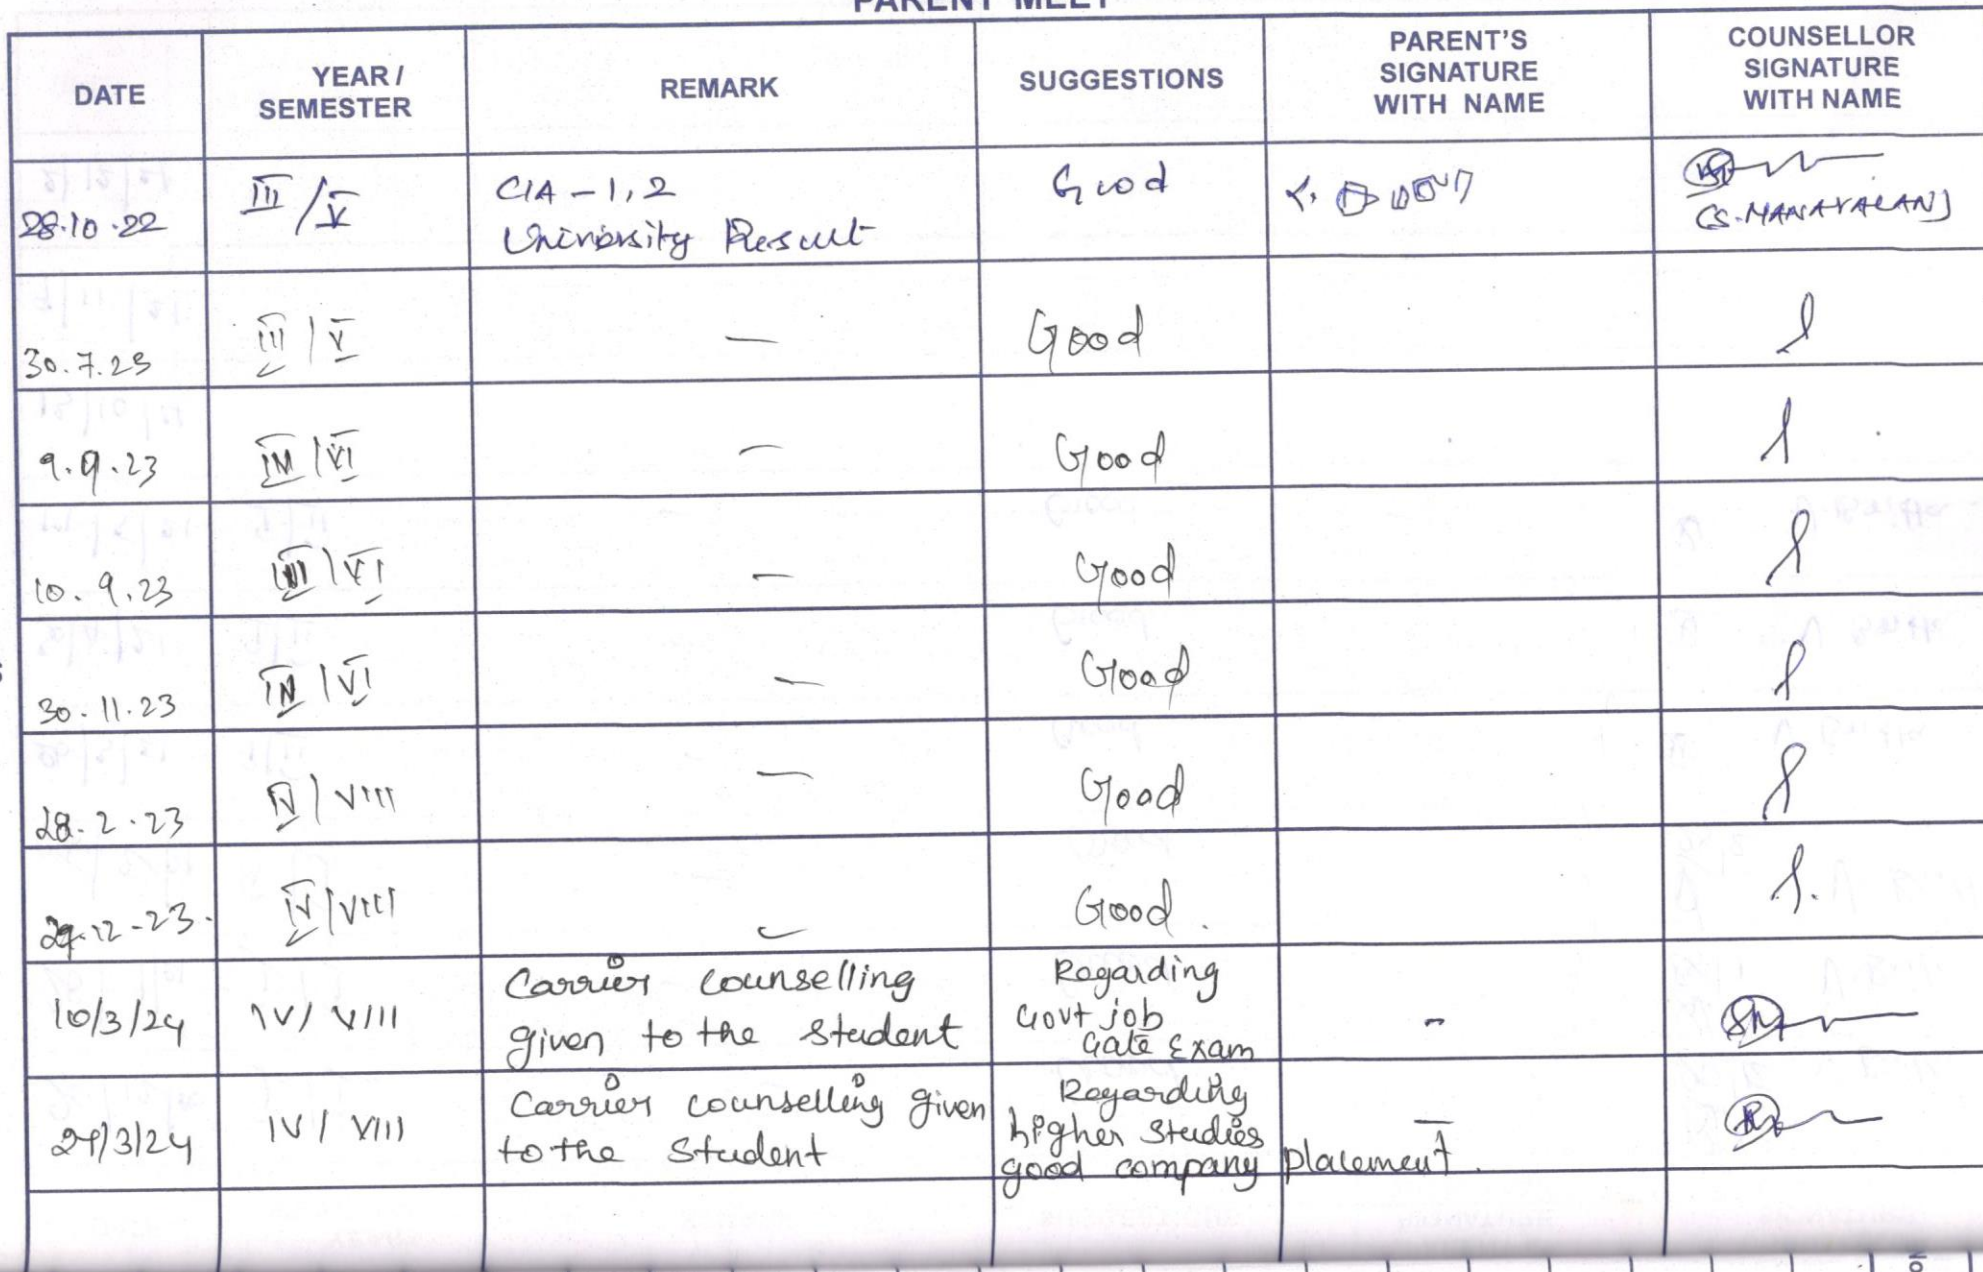 PARENT MEET
DATE
YEAR /
SEMESTER
REMARK
SUGGESTIONS
PARENT'S
SIGNATURE
WITH NAME
COUNSELLOR
SIGNATURE
WITH NAME
28.10.22
III / V
CIA - 1, 2
University Result
Good
(S. MANAVALAN)
30.7.23
III / V
—
Good
9.9.23
VI
—
Good
10.9.23
III / VI
—
Good
30.11.23
VI
—
Good
28.2.23
IV / VIII
—
Good
12-23.
IV / VIII
Good.
10/3/24
IV / VIII
Carrier counselling
given to the student
Regarding
Govt job
Gate Exam
-
3/24
IV / VIII
Carrier counselling given
to the student
Regarding
higher studies
good company placement.
—